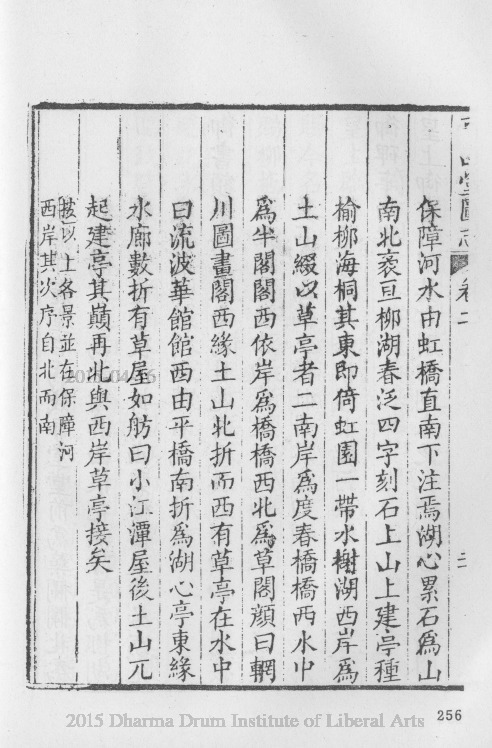 平山堂圖志 卷二 二
保障河水由虹橋直南下注焉湖心累石爲山
南北袤亘柳湖春泛四字刻石上山上建亭種
榆柳海桐其東即倚虹園一帶水榭湖西岸爲
土山綴以草亭者二南岸爲度春橋橋西水中
爲半閣閣西依岸爲橋橋西北爲草閣顔曰輞
川圖畫閣西緣土山北折而西有草亭在水中
曰流波華館館西由平橋南折爲湖心亭東緣
水廊數折有草屋如舫曰小江潭屋後土山兀
起建亭其巔再北與西岸草亭接矣
按以上各景並在保障河
西岸其次序自北而南
256
2015 Dharma Drum Institute of Liberal Arts